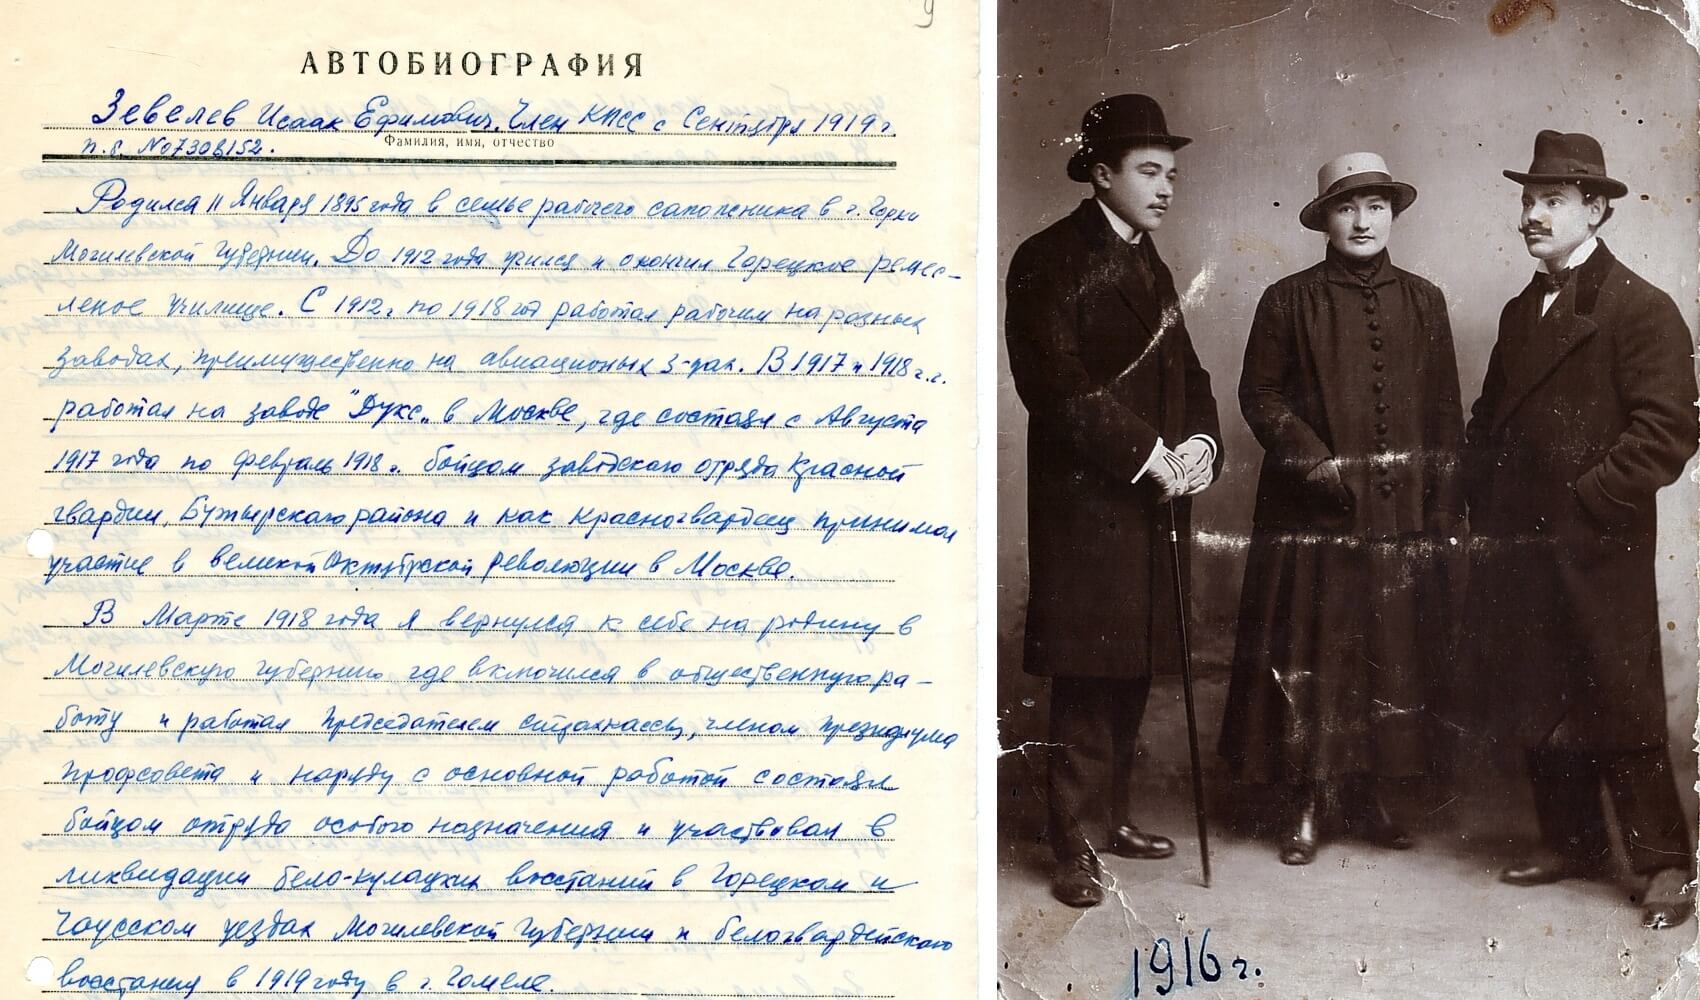 9
АВТОБИОГРАФИЯ
Зевелев Исаак Ефимович. Член КПСС с Сентября 1919 г.
Фамилия, имя, отчество
п.б. №07308152.
Родился 11 Января 1895 года в семье рабочего сапожника в г. Горки
Могилевской Губернии. До 1912 года учился и окончил Горецкое ремес-
леное училище. С 1912 г по 1918 год работал рабочим на разных
заводах, преимущественно на авиационых з-дах. В 1917 и 1918 г.г.
работал на заводе "Дукс" в Москве, где состоял с Августа
1917 года по февраль 1918 г. бойцом заводского отряда Красной
гвардии, Бутырского района и как красногвардеец принимал
участие в великой Октябрской революции в Москве.
В Марте 1918 года я вернулся к себе на родину в
Могилевскую губернию где включился в общественную ра-
боту и работал председателем страхкассы, членом президиума
Профсовета и наряду с основной работой состоял
бойцом отряда особого назначения и участвовал в
ликвидации бело-кулацких восстаний в Горецком и
Чаусском уездах Могилевской Губернии и белогвардейского
восстания в 1919 году в г. Гомеле.
1916 г.